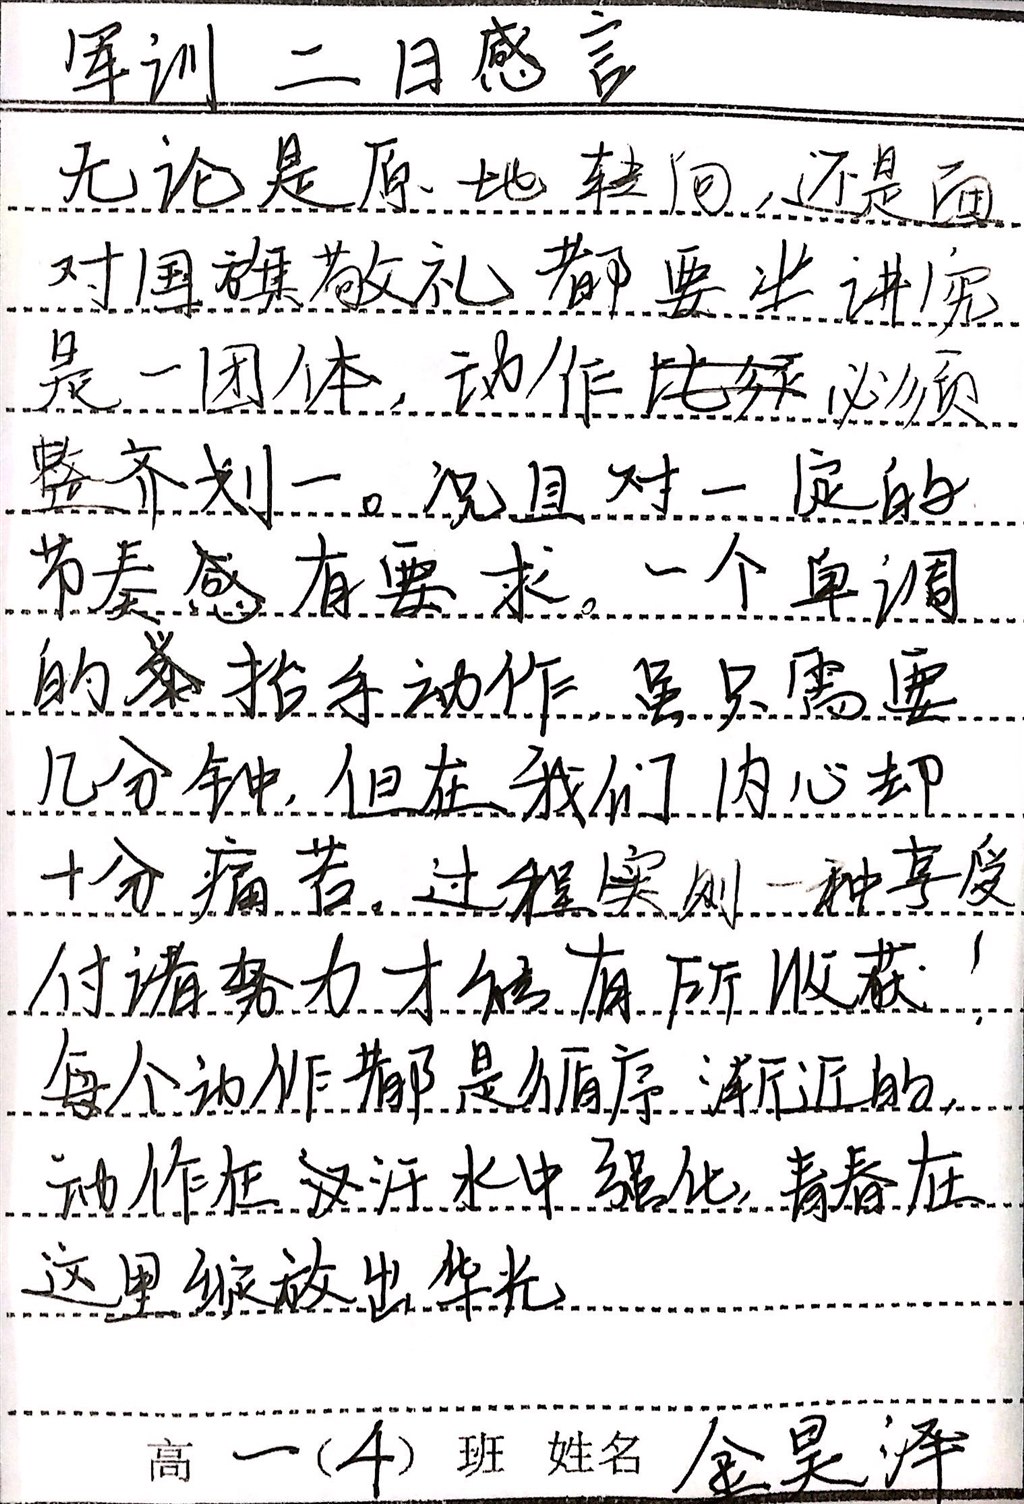 军训二日感言
无论是原地转向,还是面
对国旗敬礼都要坐讲究
是一团体,动作必须
整齐划一。况且对一定的
节奏感有要求。一个单调
的抬手动作,虽只需要
几分钟,但在我们内心却
十分痛苦。过程实则一种享受
付诸努力才能有所收获!
每个动作都是循序渐近的,
动作在汗水中强化,青春在
这里绽放出华光
高一(4)班 姓名 金昊泽